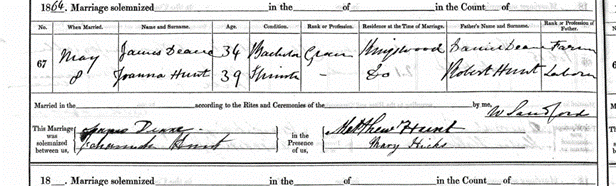 1864. Marriage solemnized in the of in the Count of
No. When Married. Name and Surname. Age. Rank or Profession. Residence at the Time of Marriage. Father's Name and Surname. Rank or Profession of Father.
67 May James Deane 34 Bachelor Kingswood Daniel Deane
8 Joanna Hunt 39 Do Robert Hunt
Married in the according to the Rites and Ceremonies of the by me, W Sandford
This Marriage was solemnized between us, James Deane in the Presence of us, Matthew Hunt
Hunt Mary Hicks
18 . Marriage solemnized in the of in the Count of